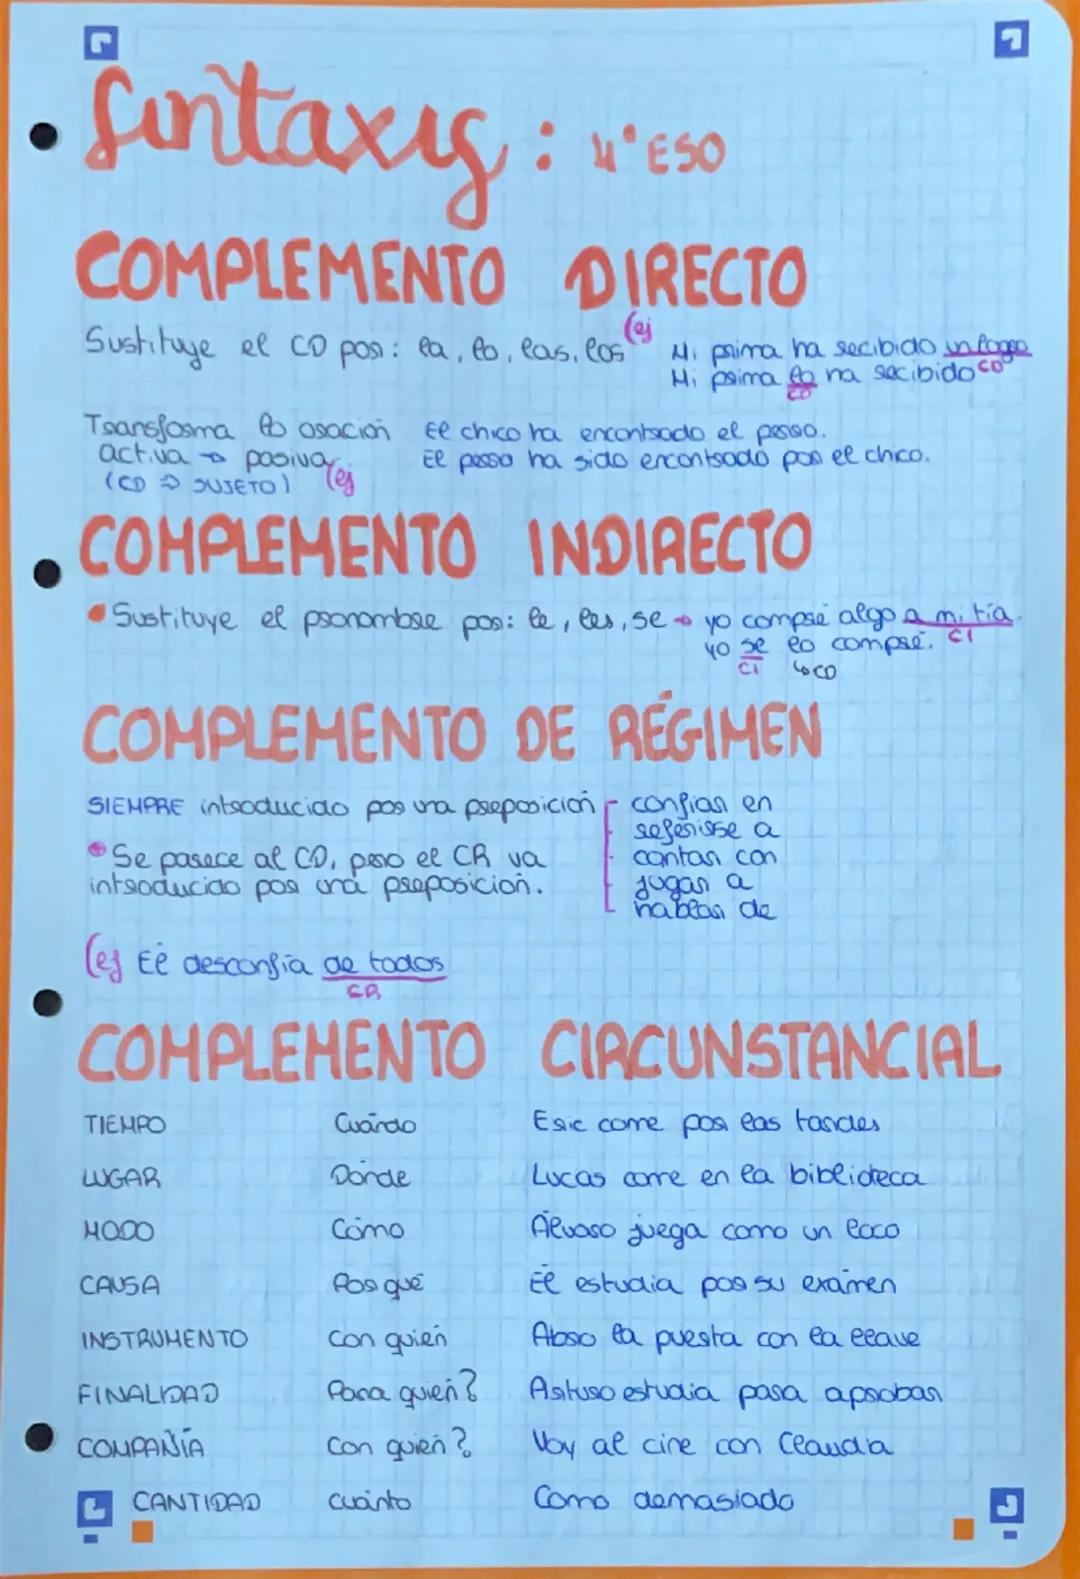 Sintaxis: 4°ESO
COMPLEMENTO DIRECTO
Sustituye el CD por: la, lo, las, los (ej Mi prima ha recibido un logro
CD
Mi prima lo ha recibido
CD
Transforma la oración El chico ha encontrado el perro.
activa → pasiva (ej El perro ha sido encontrado por el chico.
(CD ⇒ SUJETO)
COMPLEMENTO INDIRECTO
Sustituye el pronombre por: le, les, se → yo compré algo a mi tía.
CI
yo se lo compré.
CI ↳CD
COMPLEMENTO DE RÉGIMEN
SIEMPRE introducido por una preposición
confiar en
referirse a
contar con
jugar a
hablar de
Se parece al CD, pero el CR va
introducido por una preposición.
(ej Él desconfía de todos
CR
COMPLEMENTO CIRCUNSTANCIAL
TIEMPO Cuándo Eric come por las tardes
LUGAR Dónde Lucas come en la biblioteca
MODO Cómo Álvaro juega como un loco
CAUSA Por qué Él estudia por su exámen
INSTRUMENTO Con quién Abro la puerta con la llave
FINALIDAD Para quién? Arturo estudia para aprobar
COMPAÑÍA Con quién? Voy al cine con Claudia
CANTIDAD Cuánto Como demasiado